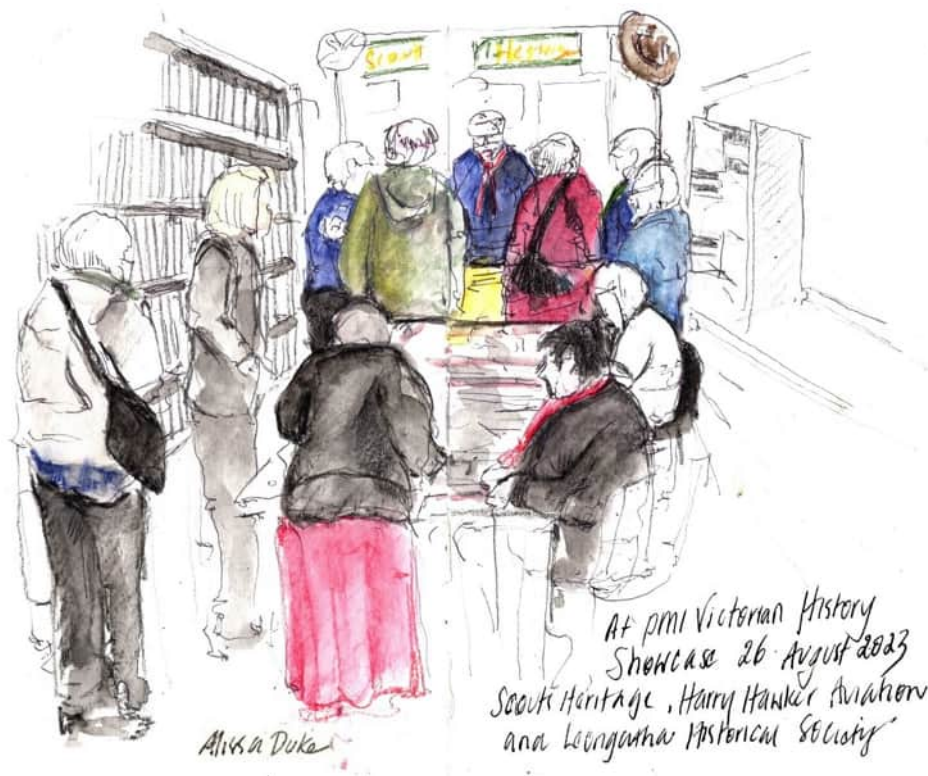 Scouts Heritage
At PMI Victorian History
Showcase 26 August 2023
Scouts Heritage, Harry Hawker Aviation
and Leongatha Historical Society
Alissa Duke